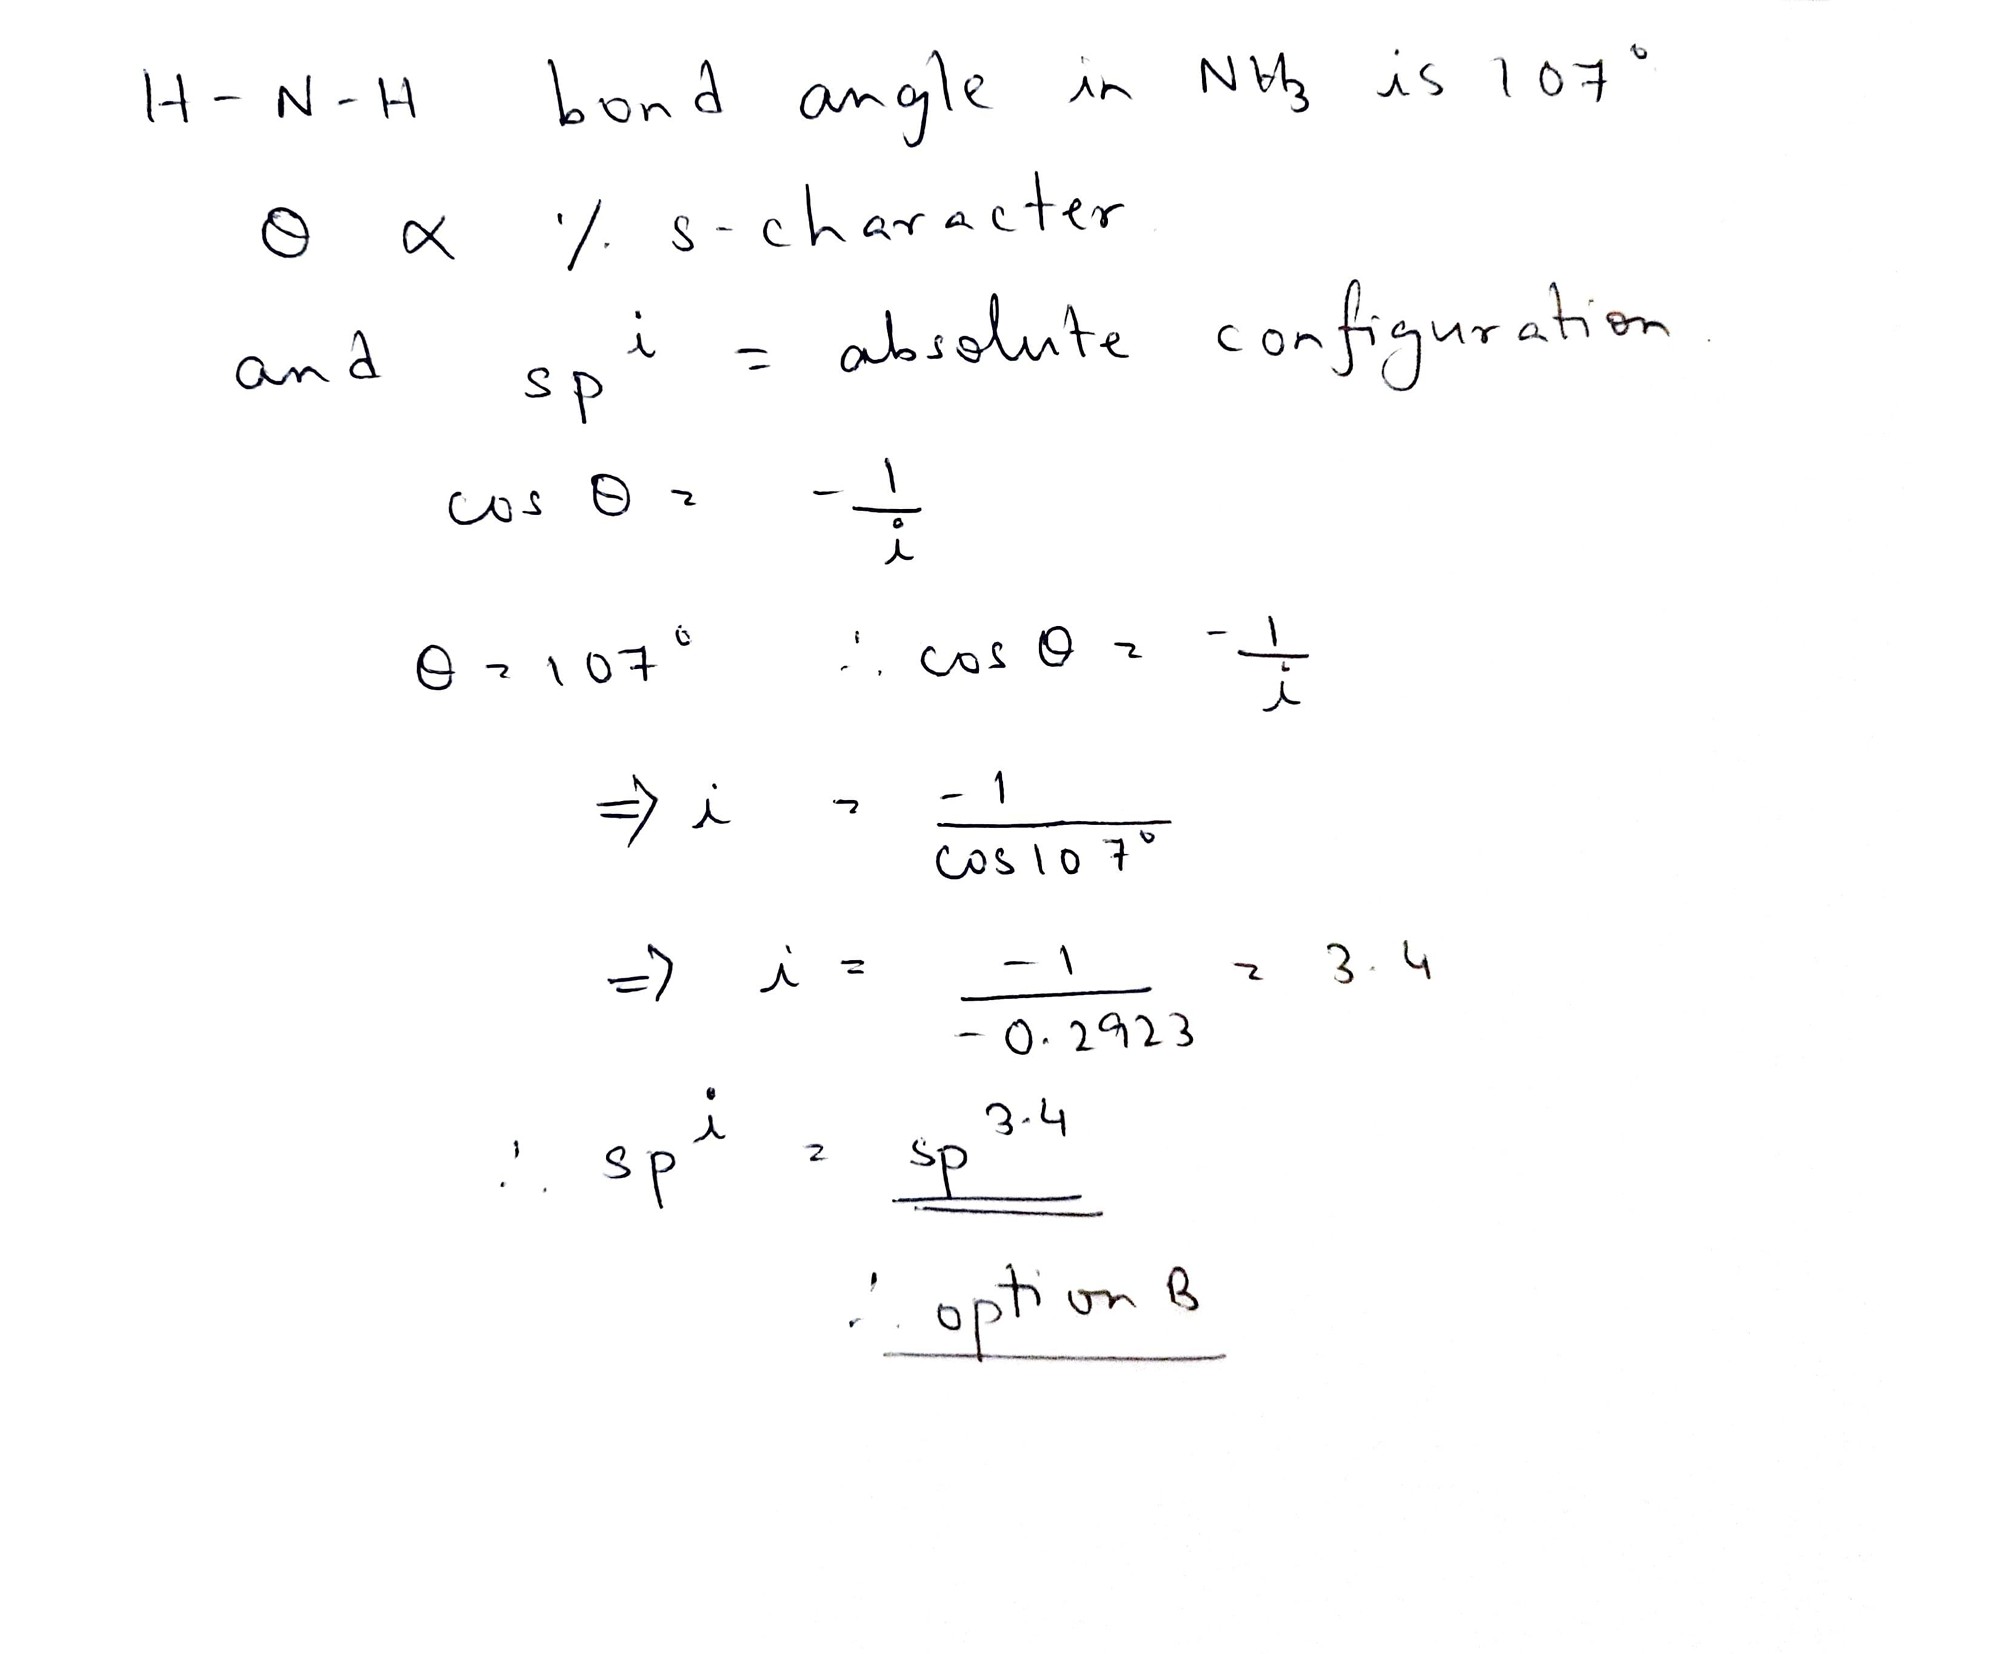 H-N-H bond angle in NH3 is 107°
θ ∝ % s-character
and sp^i = absolute configuration.
cos θ = -1/i
θ = 107° ∴ cos θ = -1/i
⇒ i = -1/cos 107°
⇒ i = -1/-0.2923 = 3.4
∴ sp^i = sp^3.4
∴ option B